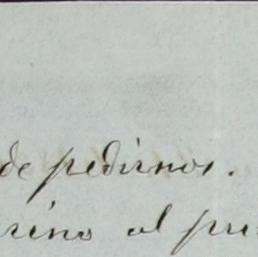 de pedirnos.
rino al pri